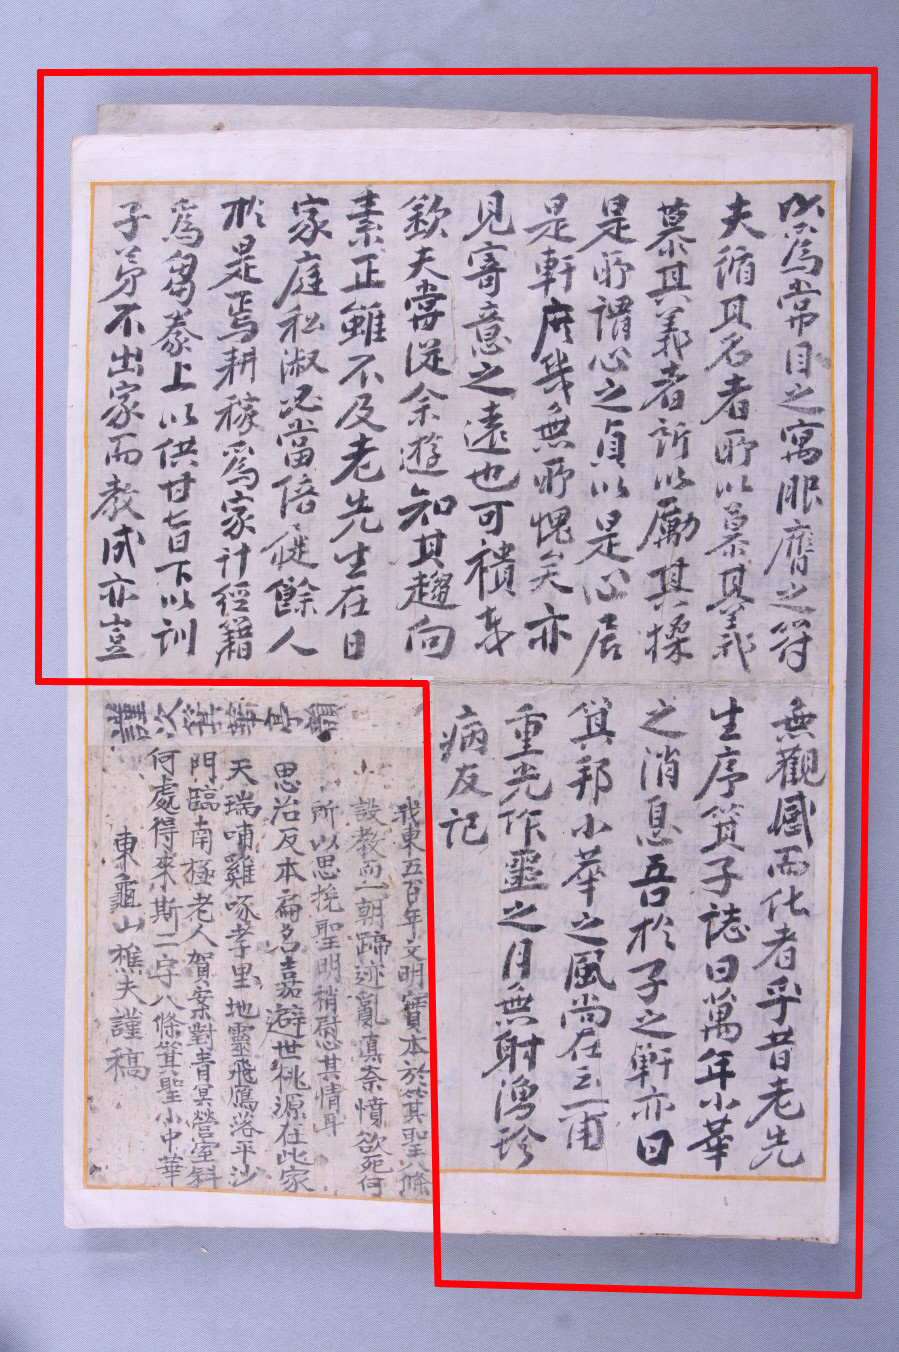 以爲常目之寓眼膺之符
夫循其名者所以慕其義
慕其義者所以厲其操
是所謂心之貞以是心居
是軒庶幾無所愧矣亦
見寄意之遠也可禎甫
欽夫嘗從余遊知其趨向
素正雖不及老先生在日
家庭私淑況當陪從餘人
於是焉耕稼爲家計經籍
爲芻豢上以供甘旨下以訓
子弟不出家而教成亦豈
無觀感而化者乎昔老先
生序箕子誌曰萬年小華
之消息吾於子之軒亦曰
箕邦小華之風尚在玆
重光作噩之月無射澷
病友記
謹次小華亭韻
我東五百年文明實本於箕聖八條
設教而一朝蹄迹亂眞奈憤欲死何
所以思挽聖明稍慰其情耳
思治反本扁名嘉避世桃源在此家
天瑞哺雞啄孝里地靈飛鴈落平沙
門臨南極老人賀案對靑冥營室斜
何處得來斯二字八條箕聖小中華
東龜山樵夫謹稿